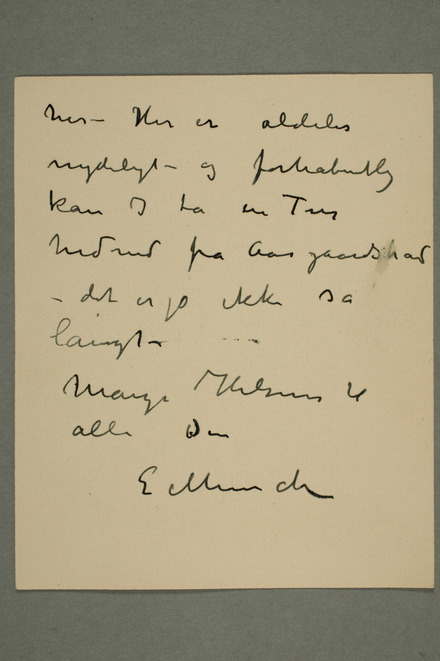 her – Her er aldeles
nydeligt – og forhabentlig
kan I ta en Tur
hid ned fra Aasgaardstrad
– det er jo ikke så
langt –
Mange Hilsner til
alle Din
E Munch